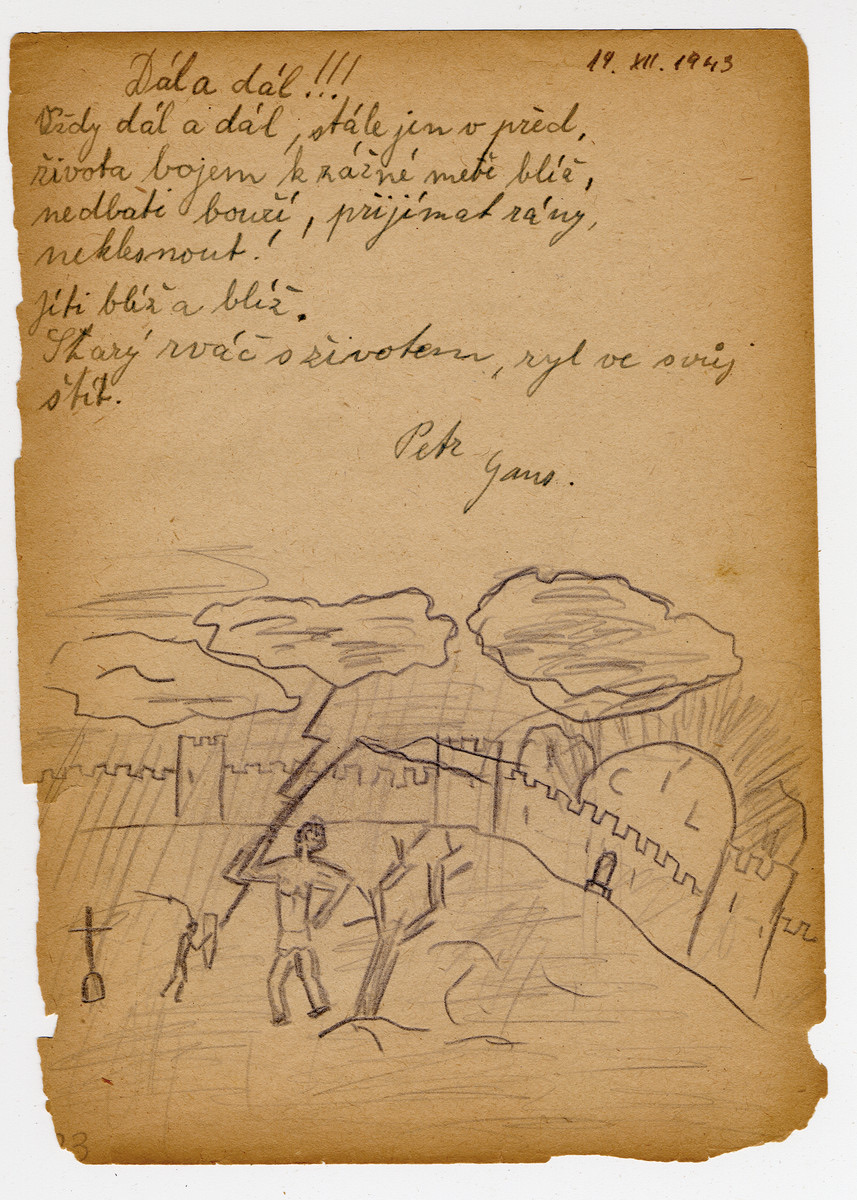 Dál a dál!!!
19. XII. 1943
Vždy dál a dál, stále jen v přéd,
života bojem k zážné metě blíž,
nedbati bouří, přijímat rány,
neklesnout!
Jíti blíž a blíž.
Starý rváč s životem, ryl ve svůj
štít.
Petr
Gans.
CÍL